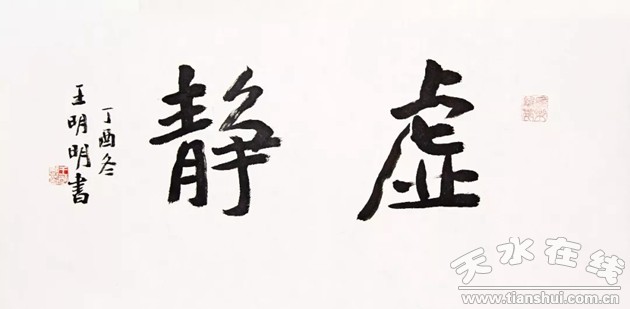 虚静
丁酉冬
王明明书
天水在线
www.tianshui.com.cn